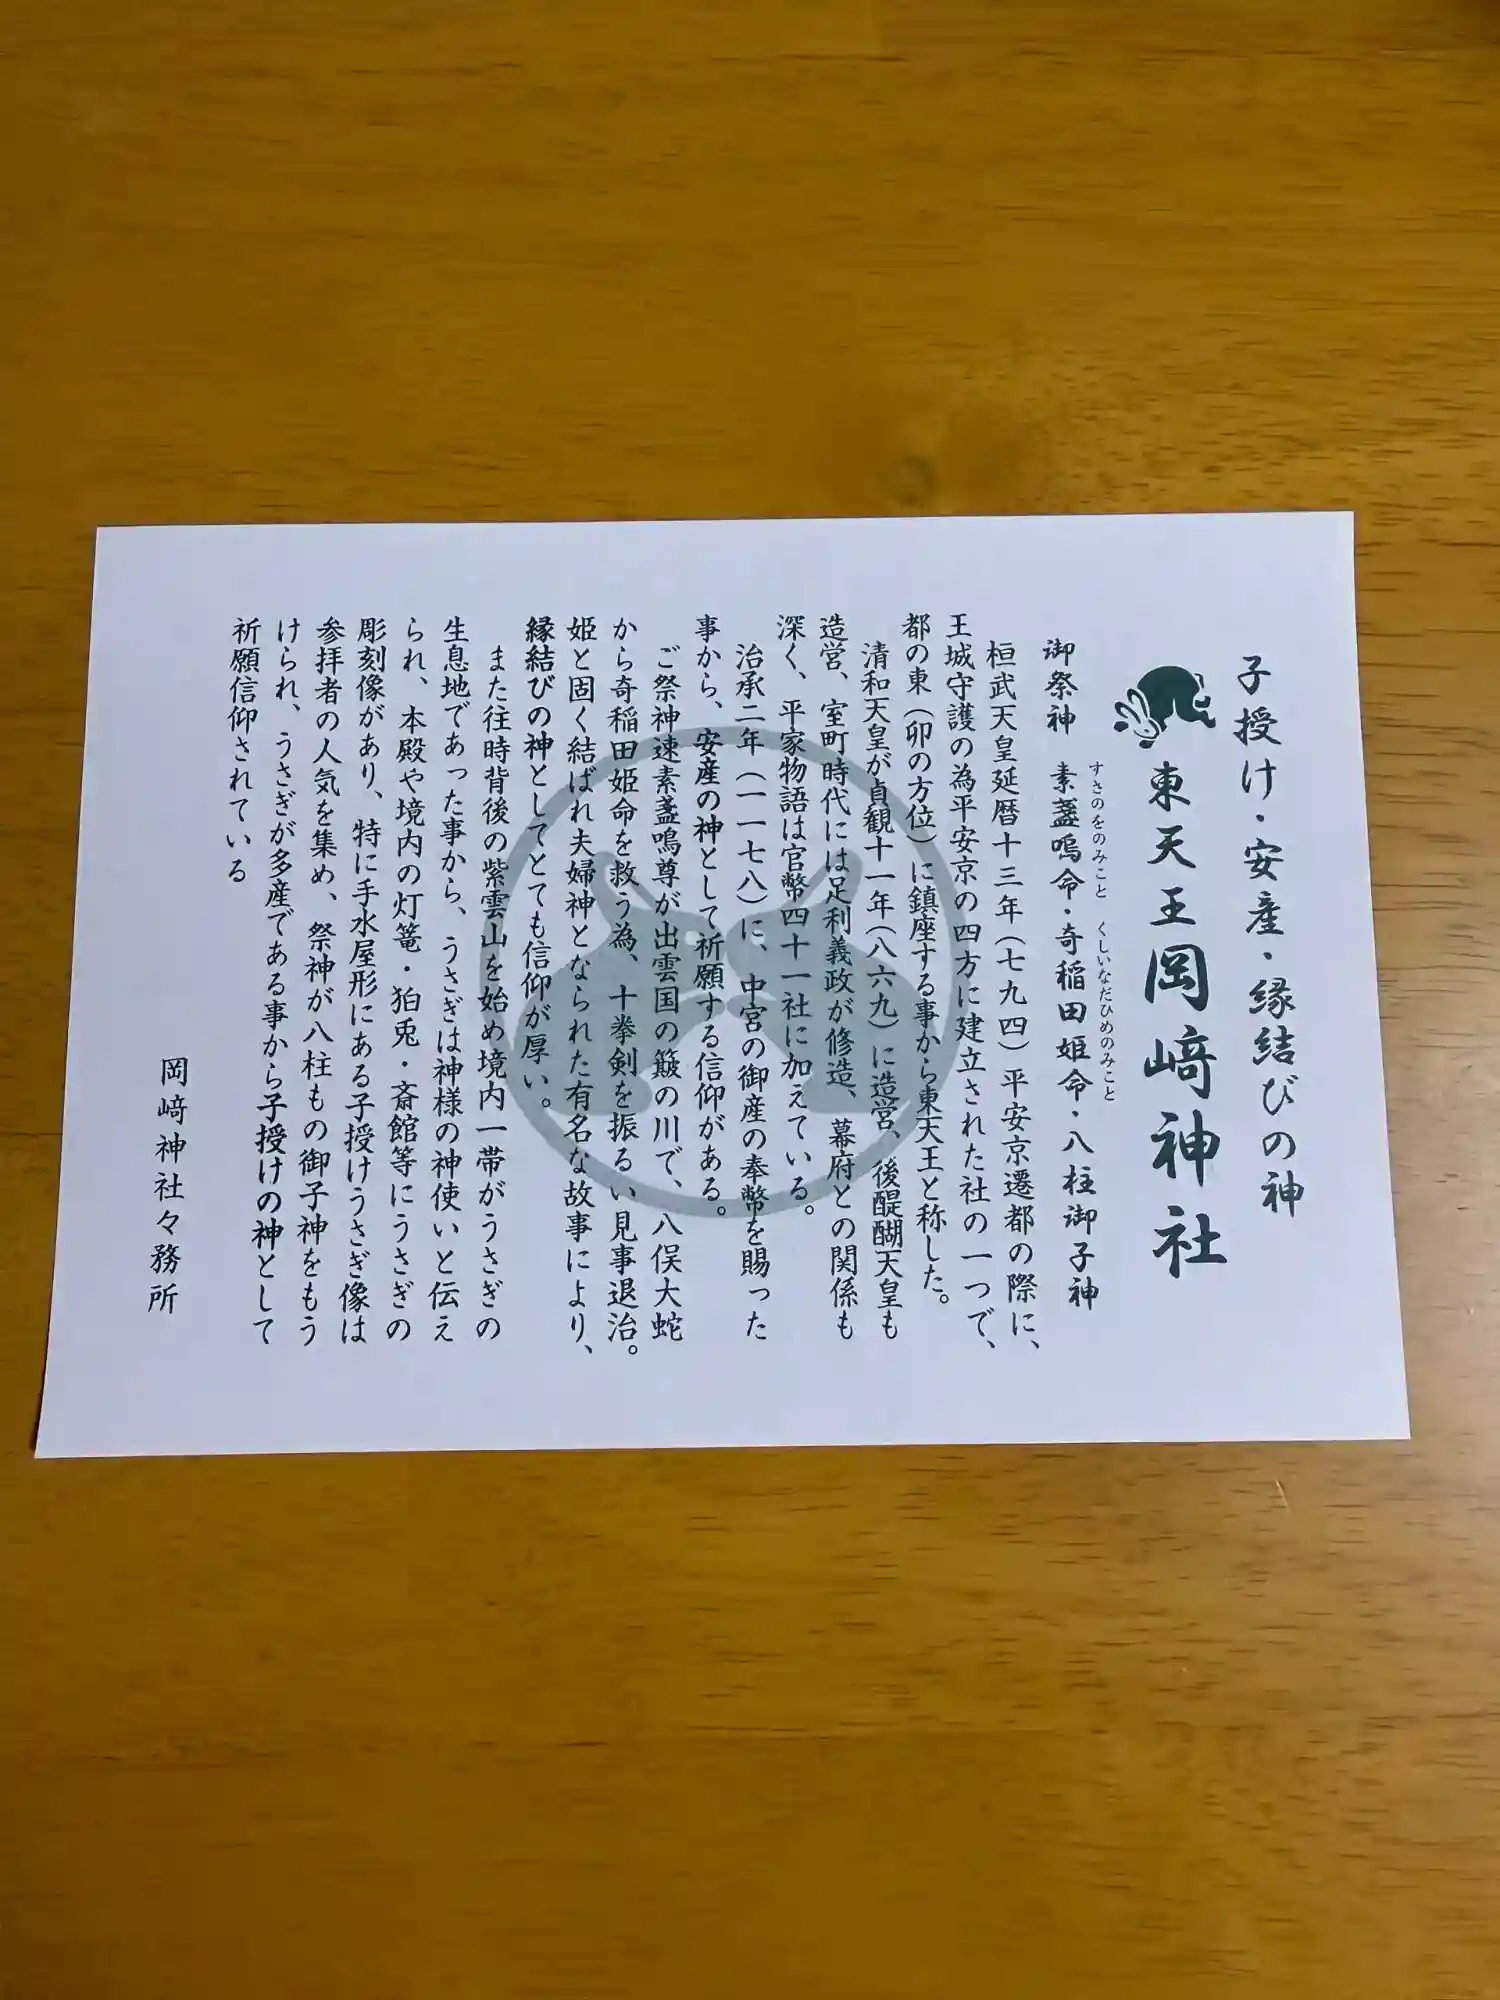 子授け・安産・縁結びの神
東天王 岡﨑神社
すさのをのみこと くしいなだひめのみこと
御祭神 素盞嗚命・奇稲田姫命・八柱御子神
桓武天皇延暦十三年(七九四)平安京遷都の際に、
王城守護の為平安京の四方に建立された社の一つで、
都の東(卯の方位)に鎮座する事から東天王と称した。
清和天皇が貞観十一年(八六九)に造営、後醍醐天皇も
造営、室町時代には足利義政が修造、幕府との関係も
深く、平家物語は官幣四十一社に加えている。
治承二年(一一七八)に、中宮の御産の奉幣を賜った
事から、安産の神として祈願する信仰がある。
ご祭神速素盞嗚尊が出雲国の簸の川で、八俣大蛇
から奇稲田姫命を救う為、十拳剣を振るい見事退治。
姫と固く結ばれ夫婦神となられた有名な故事により、
縁結びの神としてとても信仰が厚い。
また往時背後の紫雲山を始め境内一帯がうさぎの
生息地であった事から、うさぎは神様の神使いと伝え
られ、本殿や境内の灯篭・狛兎・斎館等にうさぎの
彫刻像があり、特に手水屋形にある子授けうさぎ像は
参拝者の人気を集め、祭神が八柱もの御子神をもう
けられ、うさぎが多産である事から子授けの神として
祈願信仰されている
岡﨑神社々務所